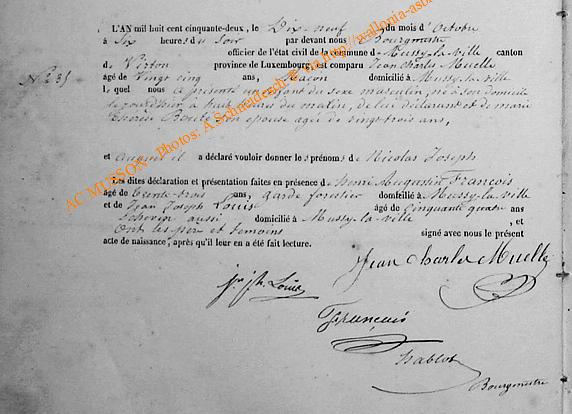 L'AN mil huit cent cinquante-deux, le Dix-neuf du mois d'Octobre
à Six heures du Soir par devant nous Bourgmestre
officier de l'état civil de la commune de Mussy-la-ville canton
d Virton province de Luxembourg est comparu Jean Charles Muelle
N° 35
âgé de Vingt cinq ans, Maçon domicilié à Mussy-la-ville
lequel nous a présenté un enfant du sexe masculin, né à son domicile
à huit heures du matin, de lui déclarant et de marie
son épouse agée de vingt trois ans,
et auquel il a déclaré vouloir donner les prénoms de Nicolas Joseph
Les dites déclaration et présentation faites en présence de Henri Augustin François
âgé de trente-trois ans, garde forestier domicilié à Mussy-la-ville
et de Jean Joseph Louis âgé de Cinquante quatre ans
aussi domicilié à Mussy-la-ville, et
ont les père et témoins signé avec nous le présent
acte de naissance, après qu'il leur en a été fait lecture.
Jean Charles Muelle
Jn Jh Louis
François
Bourgmestre
AC MUSSON - Photos: A.Schneidesch http://wallonia-ast